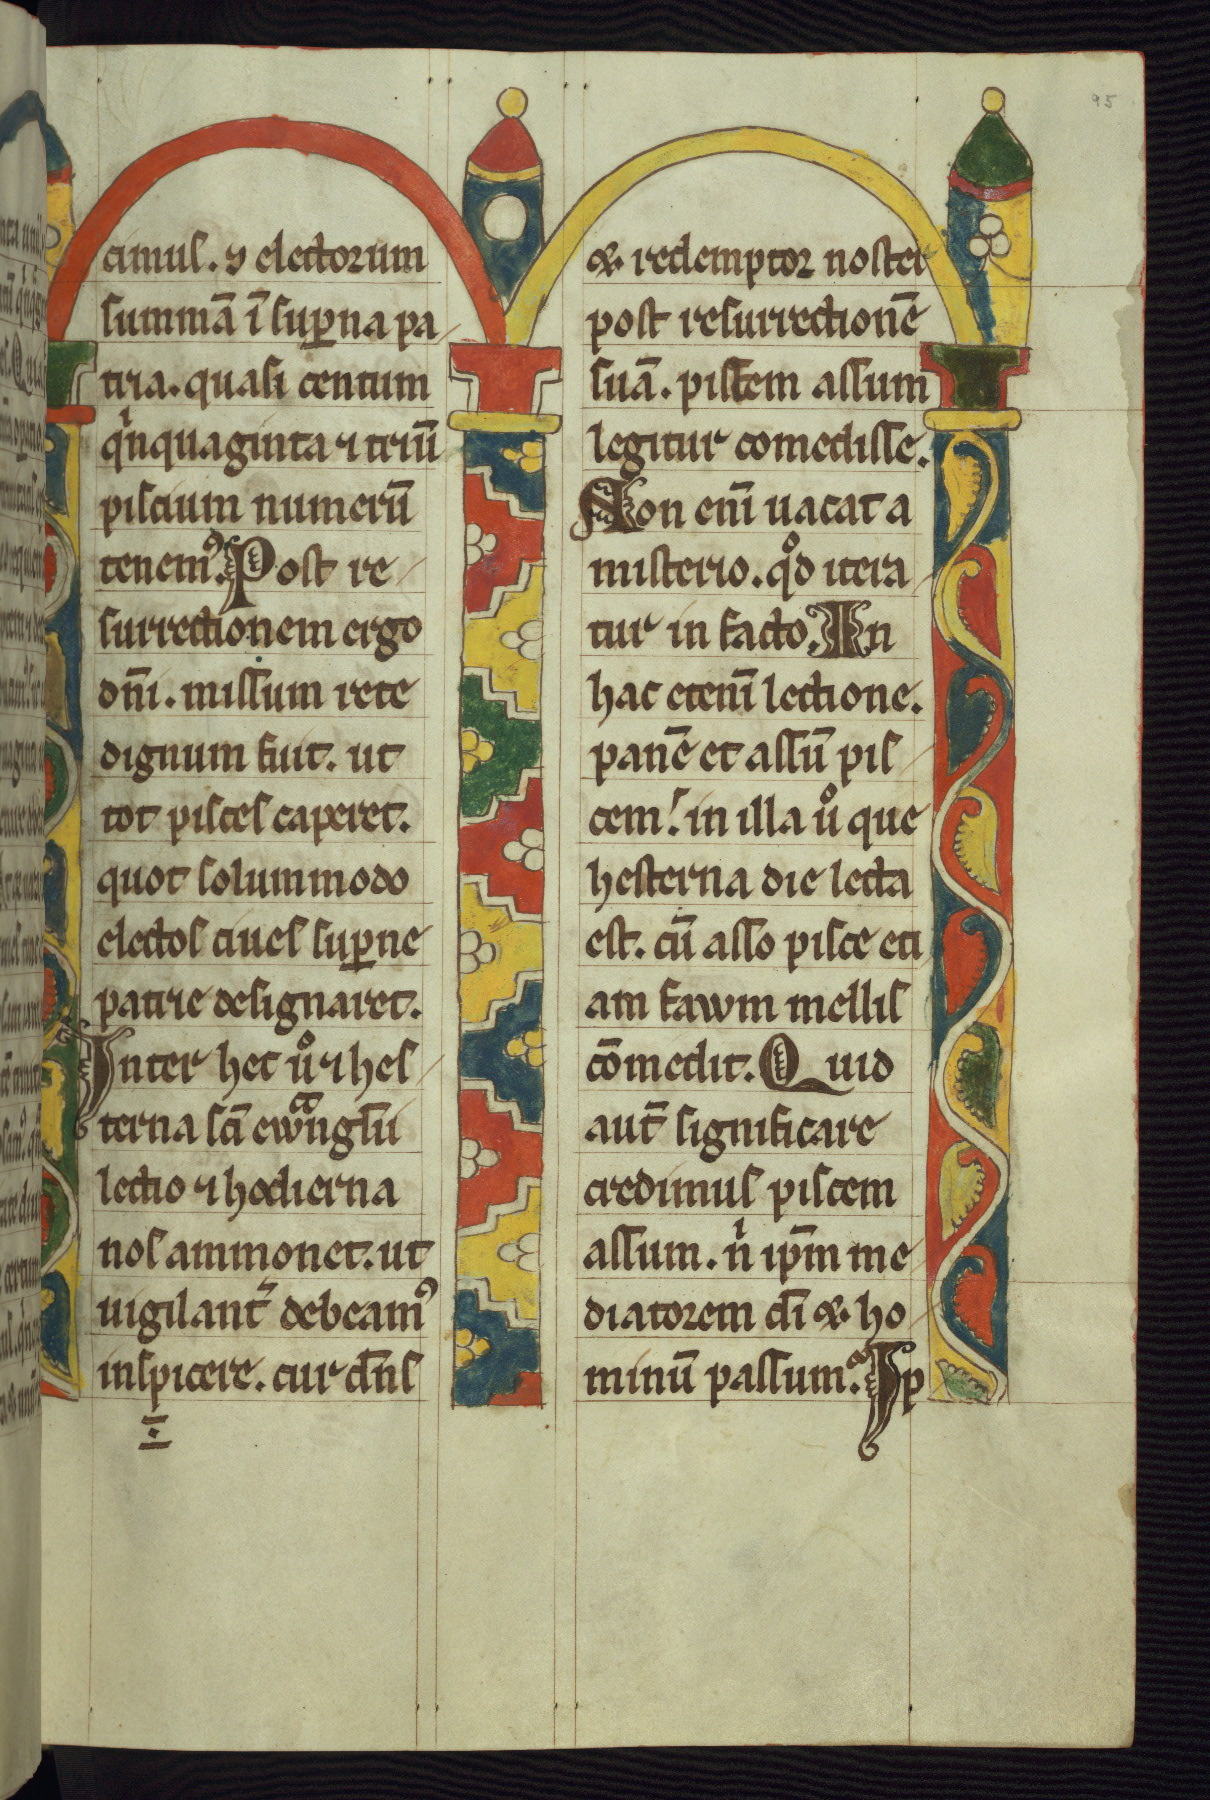 95
cimul. ⁊ electorum
summā ī suꝑna pa
tria. quasi centum
qͥnquaginta ⁊ triū
piscium numerū
tenemꝰ. Post re
surrectionem ergo
dn̄i. missum rete
dignum fuit. ut
tot pisces caperet.
quot solummodo
electos ciues suꝑne
patrie designaret.
Inter hec uͦ ⁊ hes
terna sc̄i ewangl̄ii
lectio ⁊ hodierna
nos ammonet. ut
uigilant̄ debeamꝰ
inspicere. cur dn̄s
& redemptor noster
post resurrectionē
suā. piscem assum
legitur comedisse.
Non enī uacat a
misterio. qͦd itera
tur in facto. In
hac etenī lectione.
panē et assū pis
cem. in illa uͦ que
hesterna die lecta
est. cū asso pisce eti
am fawm mellis
cōmedit. Quid
aut̄ significare
credimus piscem
assum. nͥ ip̄m me
diatorem dī & ho
minū passum. Ip